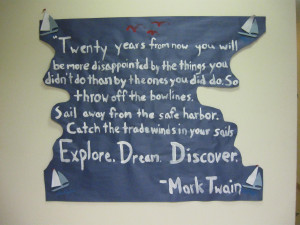 "Twenty years from now you will
be more disappointed by the things you
didn't do than by the ones you did do. So
throw off the bowlines.
Sail away from the safe harbor.
Catch the trade winds in your sails
Explore. Dream. Discover.
-Mark Twain